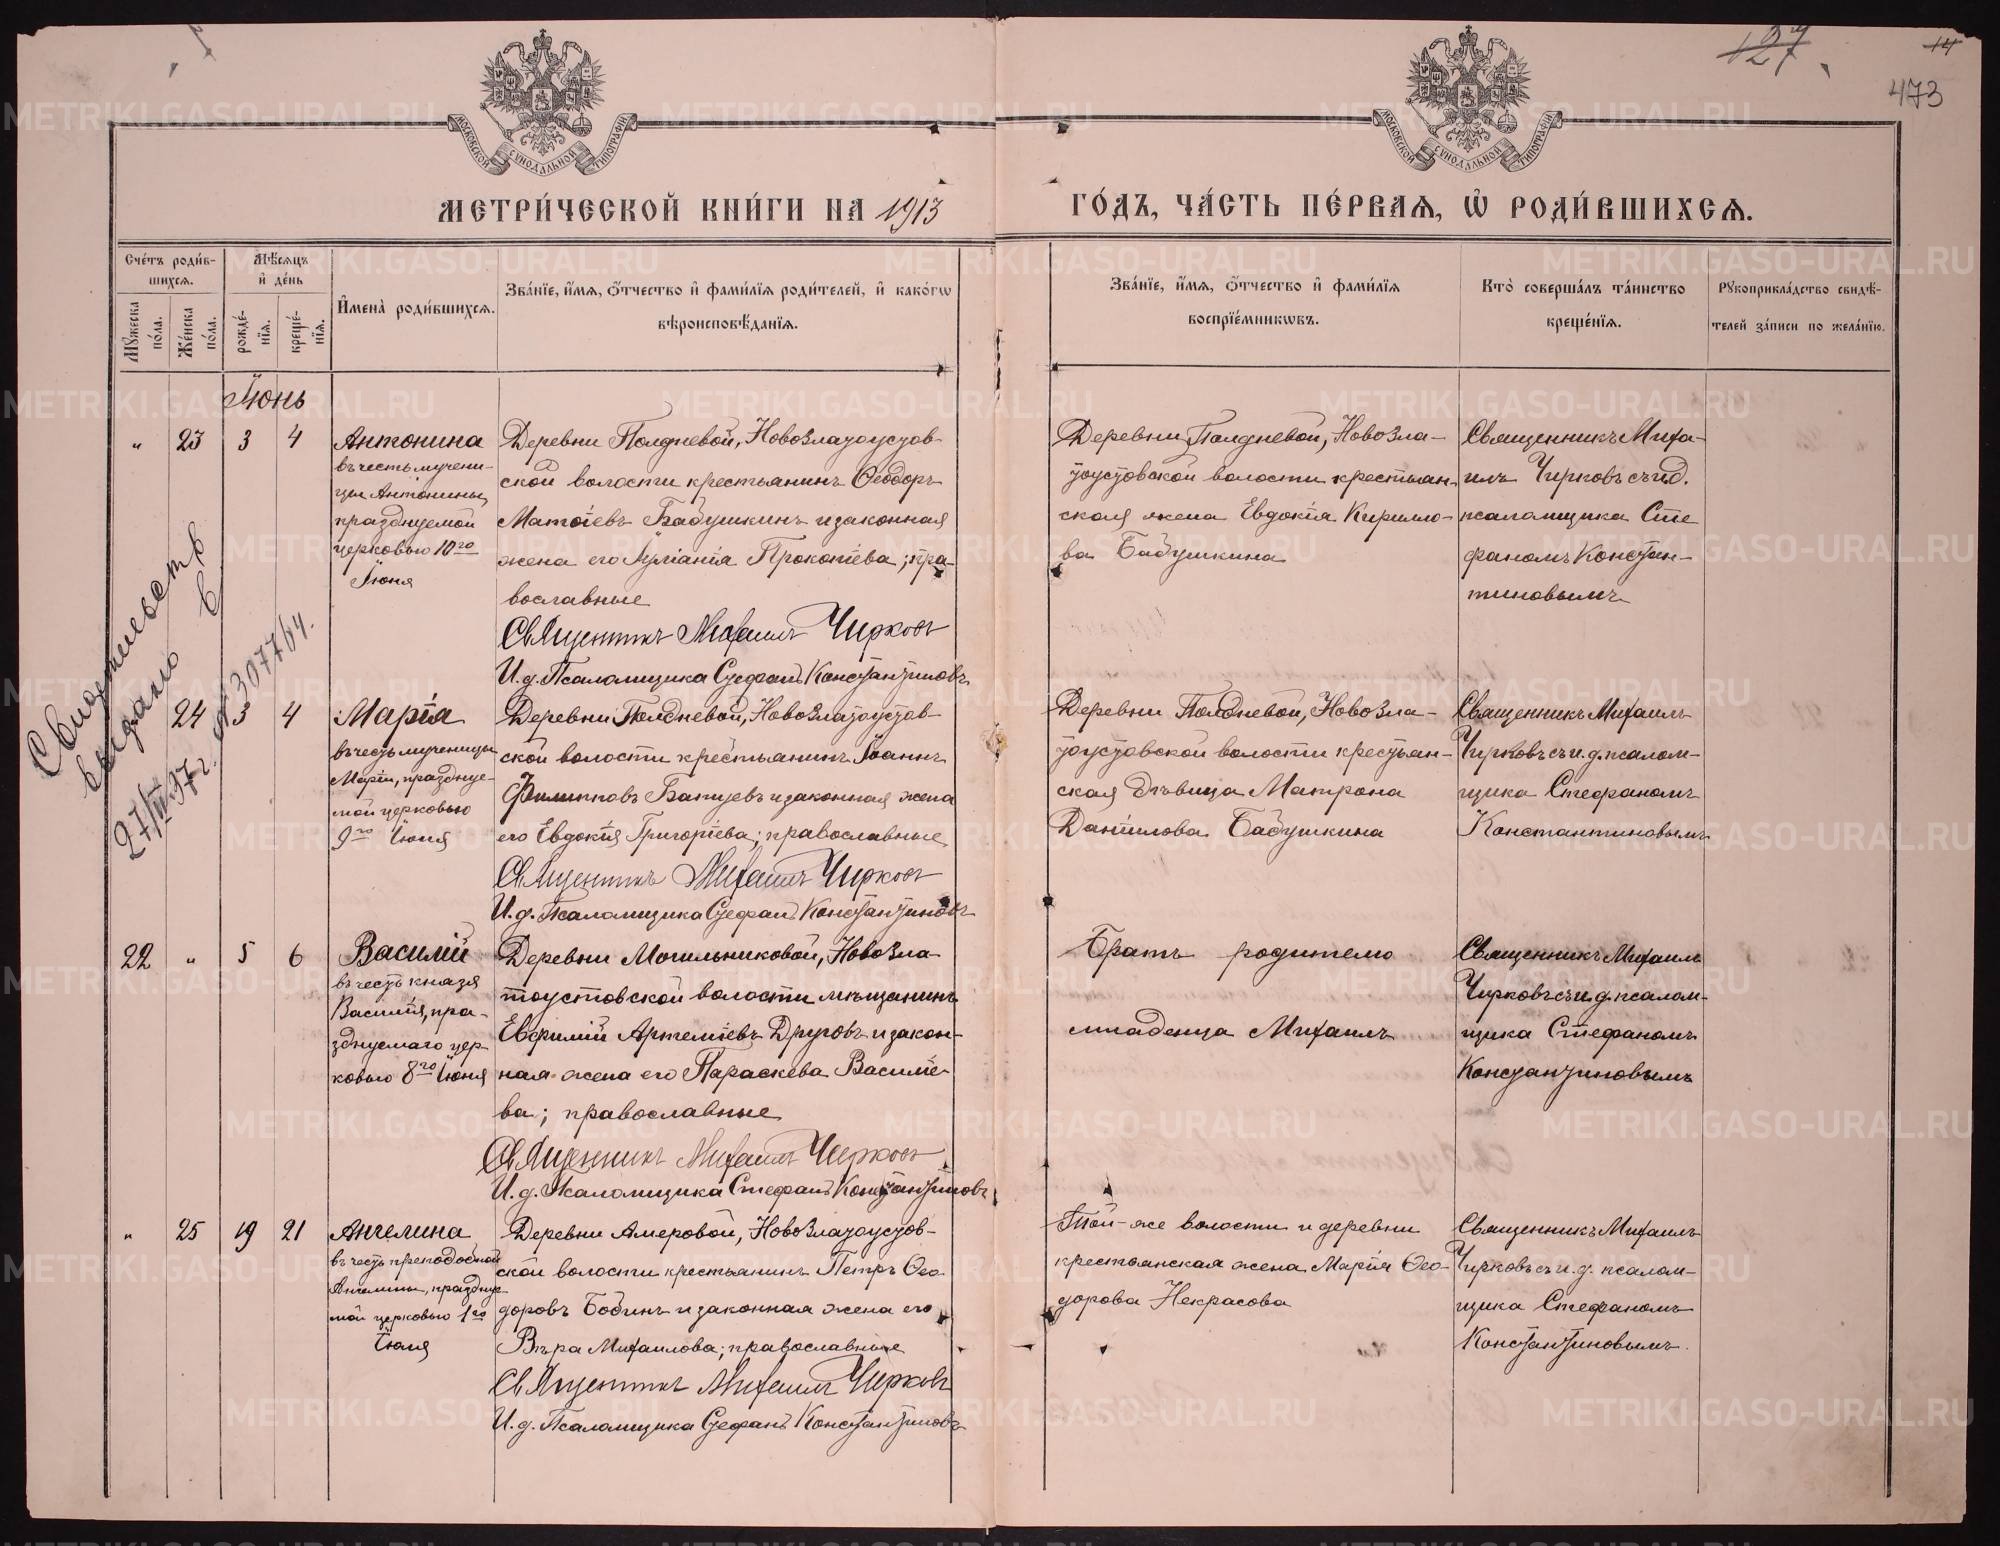 127
14
473
МОСКОВСКОЙ СѴНОДАЛЬНОЙ ТИПОГРАФІИ
МОСКОВСКОЙ СѴНОДАЛЬНОЙ ТИПОГРАФІИ
МЕТРИ́ЧЕСКОЙ КНИ́ГИ НА 1913
ГО́ДЪ, ЧА́СТЬ ПЕ́РВАѦ, Ѽ РОДИ́ВШИХСѦ.
Сче́тъ роди́в-
шихсѧ.
Мꙋжеска по́ла.
Же́нска по́ла.
Мѣ́сѧцъ
и҆ де́нь
рожде́-
нїѧ.
креще́-
нїѧ.
И҆мена̀ роди́вшихсѧ.
Зва́нїе, и҆́мѧ, ѻ҆́тчество и҆ фами́лїѧ роди́телей, и҆ како́гѡ
вѣроисповѣ́данїѧ.
Зва́нїе, и҆́мѧ, ѻ҆́тчество и҆ фами́лїѧ
воспрїе́мникѡвъ.
Кто̀ соверша́лъ та́инство
креще́нїѧ.
Рꙋкоприкла́дство свидѣ́-
телей за́писи по жела́нїю.
Іюнь
" 23 3 4
Антонина
въ честь мучени-
цы Антонины,
празднуемой
церковью 10го
Іюня
Деревни Полдневой, Новозлатоустов-
ской волости крестьянинъ Ѳеодоръ
Матѳіевъ Бабушкинъ и законная
жена его Іуліанія Прокопіева; пра-
вославные
Священникъ Михаилъ Чирковъ
И. д. Псаломщика Стефанъ Константиновъ
Деревни Полдневой, Новозла-
тоустовской волости крестьян-
ская жена Евдокія Кирилло-
ва Бабушкина
Священникъ Миха-
илъ Чирковъ съ и.д.
псаломщика Сте
фаномъ Констан-
тиновымъ
Свидетельство
выдано в
27/IV-37 г. № 307764.
24 3 4
Марія
въ честь мученицы
Маріи, празднуе-
мой церковью
9го Іюня
Деревни Полдневой, Новозлатоустов-
ской волости крестьянинъ Іоаннъ
Филипповъ Банцевъ и законная жена
его Евдокія Григоріева; православные
Священникъ Михаилъ Чирковъ
И. д. Псаломщика Стефанъ Константиновъ
Деревни Полдневой, Новозла-
тоустовской волости крестьян-
ская дѣвица Матрона
Даніилова Бабушкина
Священникъ Михаилъ
Чирковъ съ и. д. псалом-
щика Стефаномъ
Константиновымъ
22 " 5 6
Василій
въ честь князя
Василія, пра-
зднуемаго цер-
ковью 8го Іюня
Деревни Могильниковой, Новозла
тоустовской волости мѣщанинъ
Евфимій Артеміевъ Друговъ и закон-
ная жена его Параскева Василіе-
ва; православные
Священникъ Михаилъ Чирковъ
И. д. Псаломщика Стефанъ Константиновъ
Братъ родителю
младенца Михаилъ
Священникъ Михаилъ
Чирковъ съ и. д. псалом-
щика Стефаномъ
Константиновымъ
" 25 19 21
Ангелина
въ честь преподобной
Ангелины, праздну
мой церковью 1го
Іюля
Деревни Амеровой, Новозлатоустов-
ской волости крестьянинъ Петръ Ѳео-
доровъ Бобинъ и законная жена его
Вѣра Михаилова; православные
Священникъ Михаилъ Чирковъ
И. д. Псаломщика Стефанъ Константиновъ
Той-же волости и деревни
крестьянская жена Марія Ѳео-
дорова Некрасова
Священникъ Михаилъ
Чирковъ съ и. д. псалом-
щика Стефаномъ
Константиновымъ.
METRIKI.GASO-URAL.RU